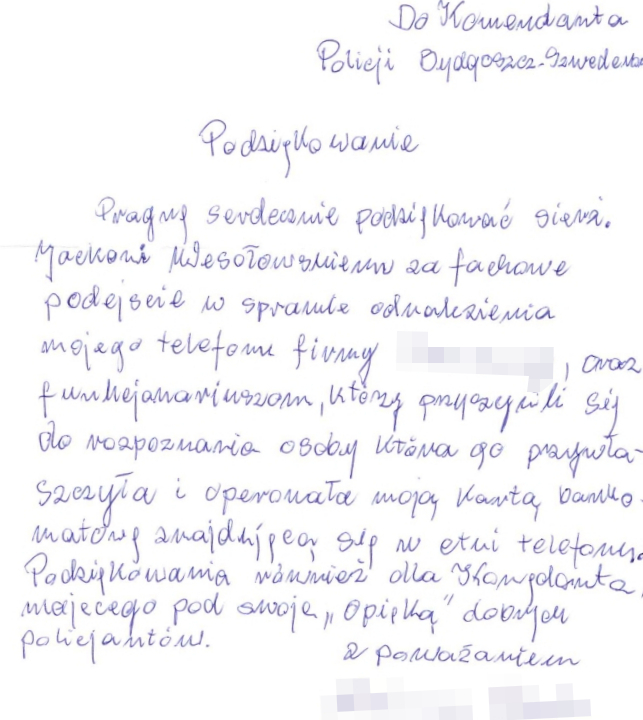 Do Komendanta
Policji Bydgoszcz-Szwederowo
Podziękowanie
Pragnę serdecznie podziękować sierż.
Jackowi Wesołowskiemu za fachowe
podejście w sprawie odnalezienia
mojego telefonu firmy , oraz
funkcjonariuszom, którzy przyczynili się
do rozpoznania osoby która go przywła-
szczyła i operowała moją kartą banko-
matową znajdującą się w etui telefonu.
Podziękowania również dla Komendanta,
mającego pod swoją „opieką” dobrych
policjantów.
z poważaniem